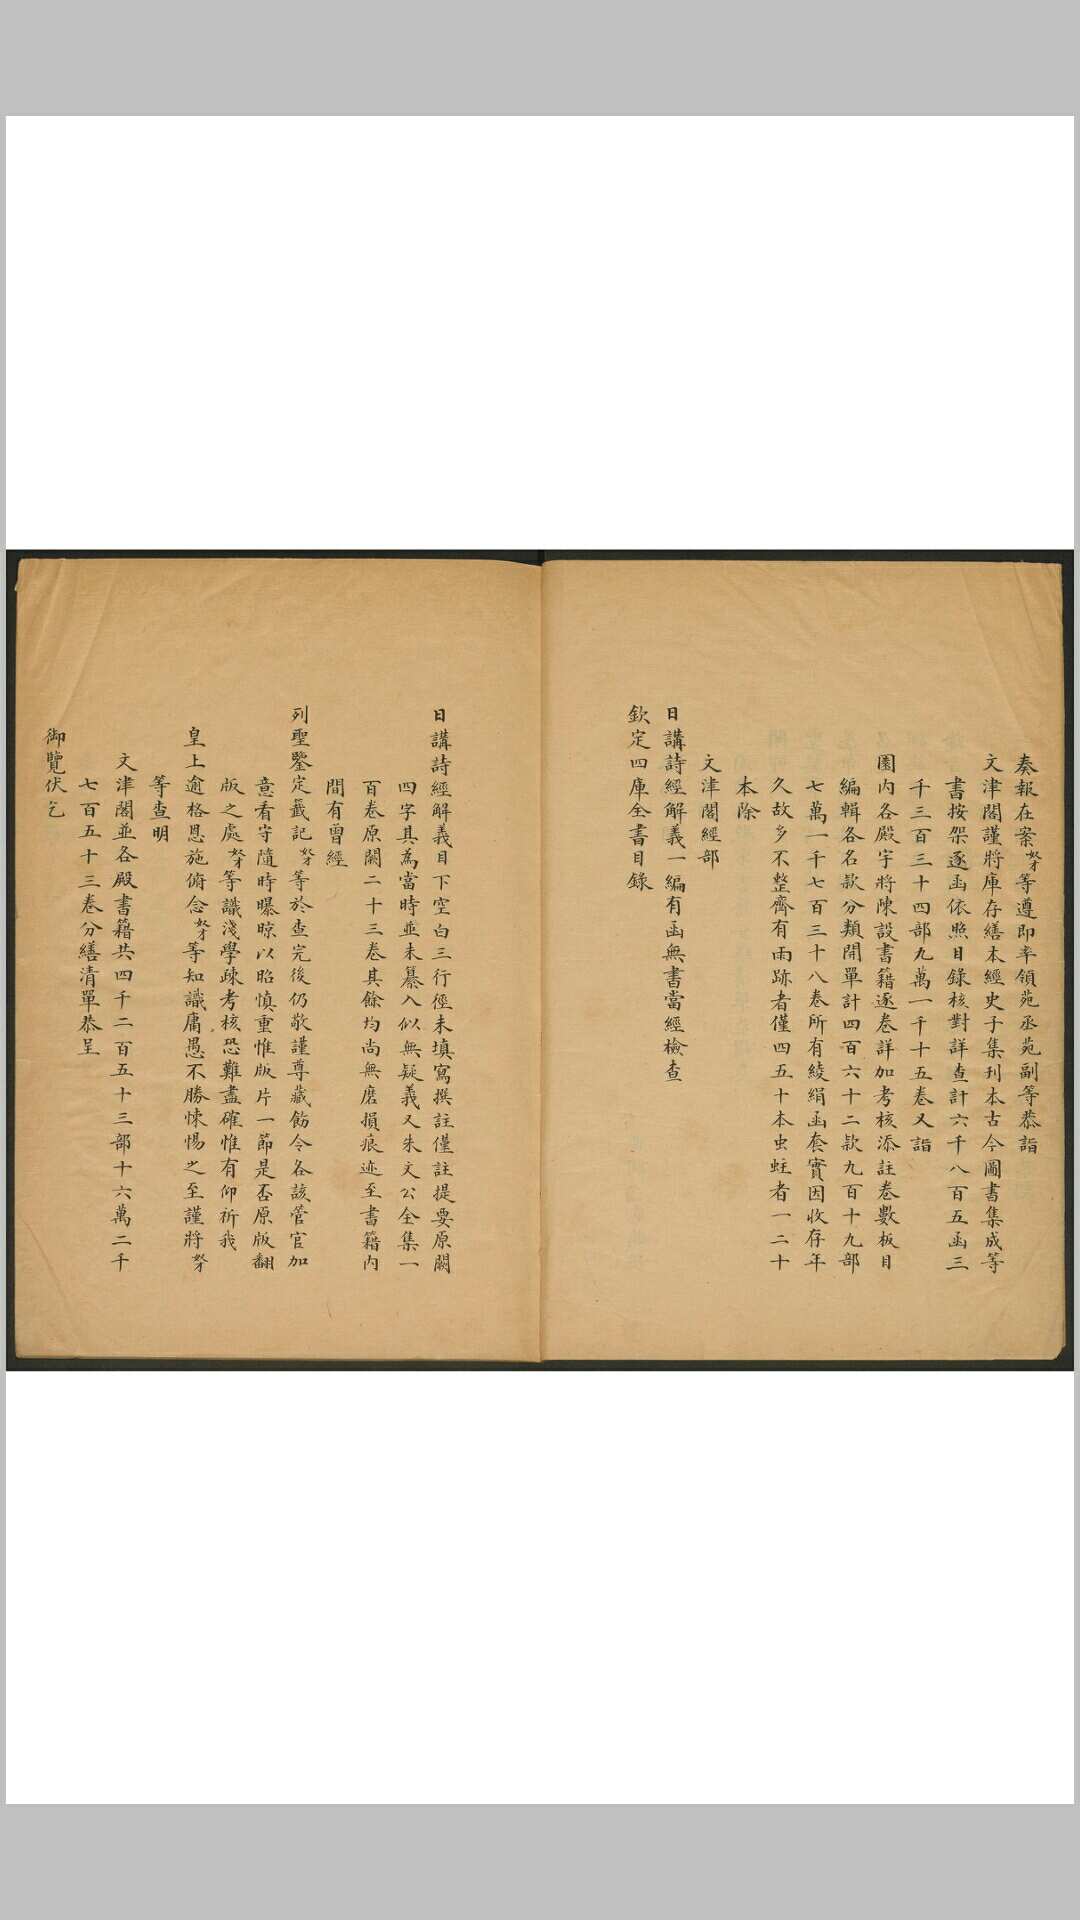 奏報在案奴才等遵即率領苑丞苑副等恭詣
文津閣謹將庫存繕本經史子集刊本古今圖書集成等
書按架逐函依照目錄核對詳查計六千八百五函三
千三百三十四部九萬一千十五卷又詣
園內各殿宇將陳設書籍逐卷詳加考核添註卷數板目
編輯各名款分類開單計四百六十二款九百十九部
七萬一千七百三十八卷所有綾絹函套實因收存年
久故多不整齊有雨跡者僅四五十本虫蛀者一二十
本除
文津閣經部
日講詩經解義一編有函無書當經檢查
欽定四庫全書目錄
日講詩經解義目下空白三行徑未填寫撰註僅註提要原闕
四字其為當時並未纂入似無疑義又朱文公全集一
百卷原闕二十三卷其餘均尚無磨損痕迹至書籍內
間有曾經
列聖鑒定籤記奴才等於查完後仍敬謹尊藏飭令各該管官加
意看守隨時曝晾以昭慎重惟版片一節是否原版翻
版之處奴才等識淺學疎考核恐難盡確惟有仰祈我
皇上逾格恩施俯念奴才等知識庸愚不勝悚惕之至謹將奴才
等查明
文津閣並各殿書籍共四千二百五十三部十六萬二千
七百五十三卷分繕清單恭呈
御覽伏乞